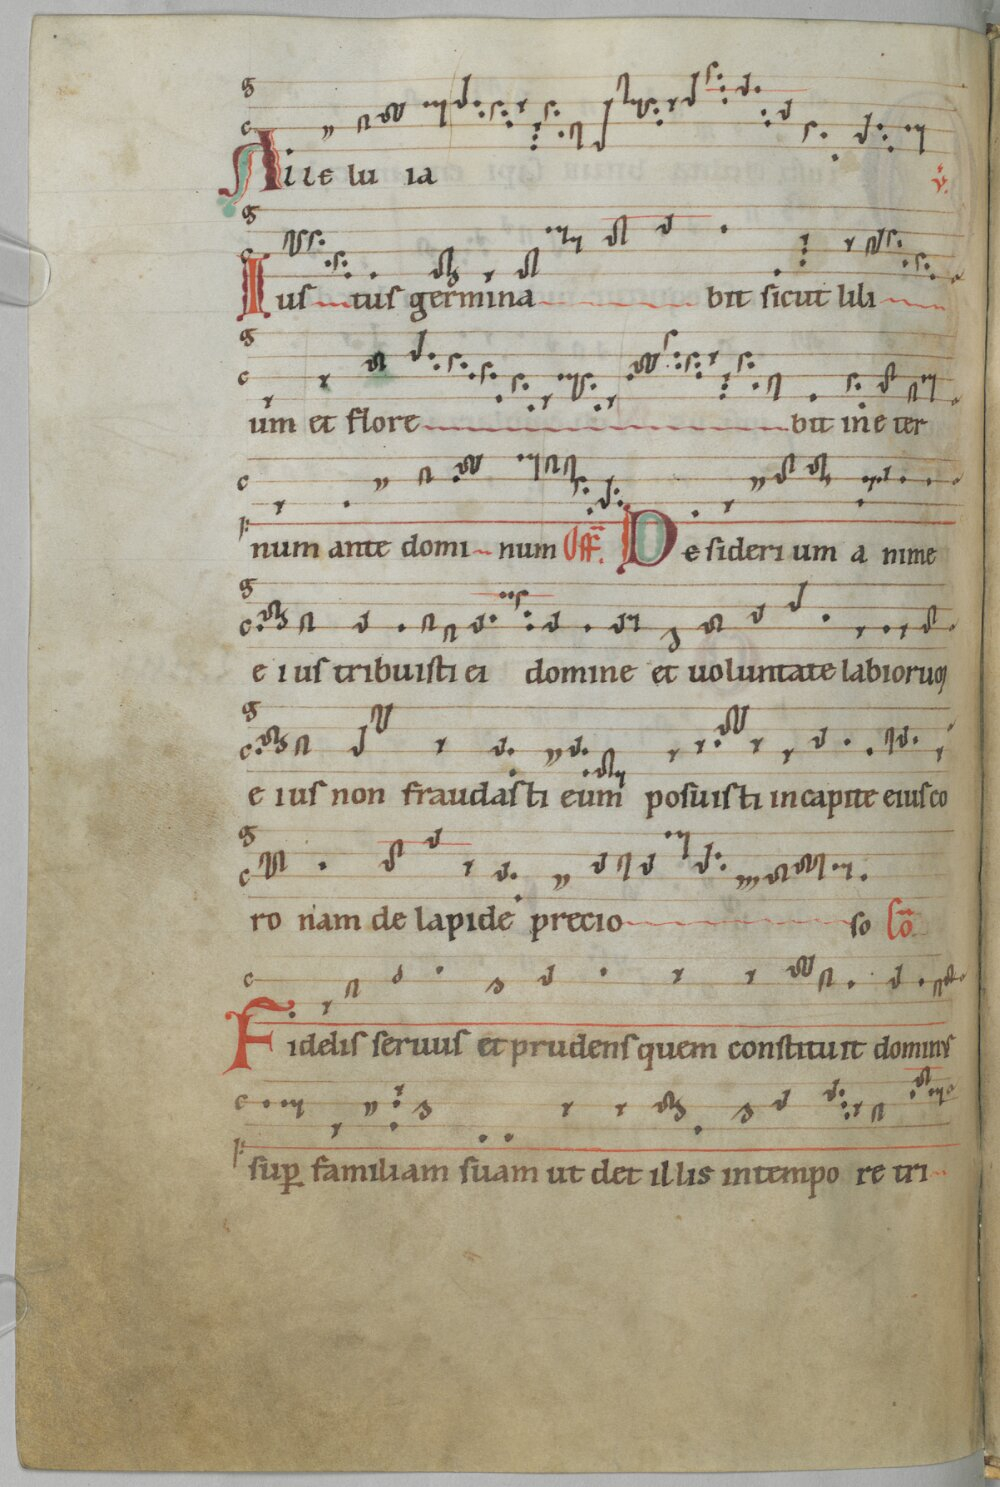 Alle lu ia ℣.
Ius tus germina bit sicut lili
um et flore bit in e ter
num ante domi num Off. De siderium a nime
e ius tribuisti ei domine et uoluntate labiorum
e ius non fraudasti eum posuisti in capite eius co
ro nam de lapide precio so Co
Fidelis seruus et prudens quem constituit dominus
sup familiam suam ut det illis in tempo re tri